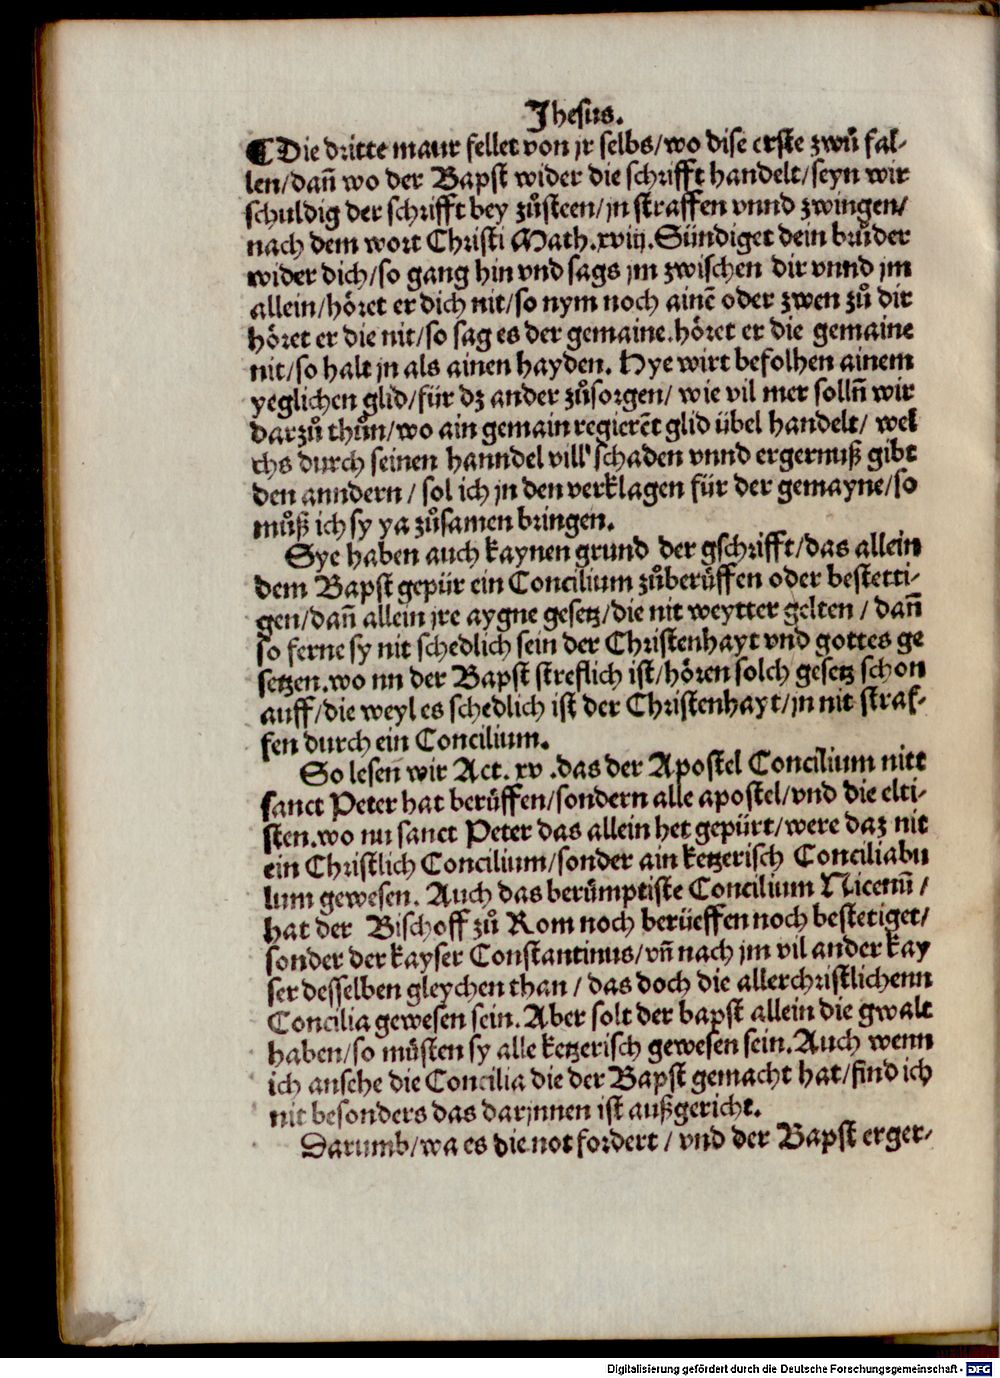 Jhesus.
¶Die dritte maur fellet von jr selbs/wo dise erste zwů fal-
len/dañ wo der Bapst wider die schrifft handelt/seyn wir
schuldig der schrifft bey zůsteen/jn straffen vnnd zwingen/
nach dem wort Christi Math.xviij.Sündiget dein brůder
wider dich/so gang hin vnd sags jm zwischen dir vnnd jm
allein/höret er dich nit/so nym noch ainẽ oder zwen zů dir
höret er die nit/so sag es der gemaine.höret er die gemaine
nit/so halt jn als ainen hayden. Hye wirt befolhen ainem
yeglichen glid/für dz ander zůsorgen/ wie vil mer sollñ wir
darzů thůn/wo ain gemain regierẽt glid übel handelt/ wel
chs durch seinen hanndel vill' schaden vnnd ergernuß gibt
den anndern/ sol ich jn den verklagen für der gemayne/so
můß ich sy ya zůsamen bringen.
Sye haben auch kaynen grund der gschrifft/das allein
dem Bapst gepür ein Concilium zůberüffen oder bestetti-
gen/dañ allein jre aygne gesetz/die nit weytter gelten/ dañ
so ferne sy nit schedlich sein der Christenhayt vnd gottes ge
setzen.wo nn der Bapst streflich ist/hören solch gesetz schon
auff/die weyl es schedlich ist der Christenhayt/jn nit straf-
fen durch ein Concilium.
So lesen wir Act. xv .das der Apostel Concilium nitt
sanct Peter hat berüffen/sondern alle apostel/vnd die elti-
sten.wo nu sanct Peter das allein het gepürt/were daz nit
ein Christlich Concilium/sonder ain ketzerisch Conciliabu
lum gewesen. Auch das berümptiste Concilium Nicenũ/
hat der Bischoff zů Rom noch berüeffen noch bestetiget/
sonder der kayser Constantinus/vñ nach jm vil ander kay
ser desselben gleychen than/ das doch die allerchristlichenn
Concilia gewesen sein. Aber solt der bapst allein die gwalt
haben/so müsten sy alle ketzerisch gewesen sein. Auch wenn
ich ansehe die Concilia die der Bapst gemacht hat/find ich
nit besonders das darjnnen ist außgericht.
Darumb/wa es die not fordert/ vnd der Bapst erger-
Digitalisierung gefördert durch die Deutsche Forschungsgemeinschaft - DFG